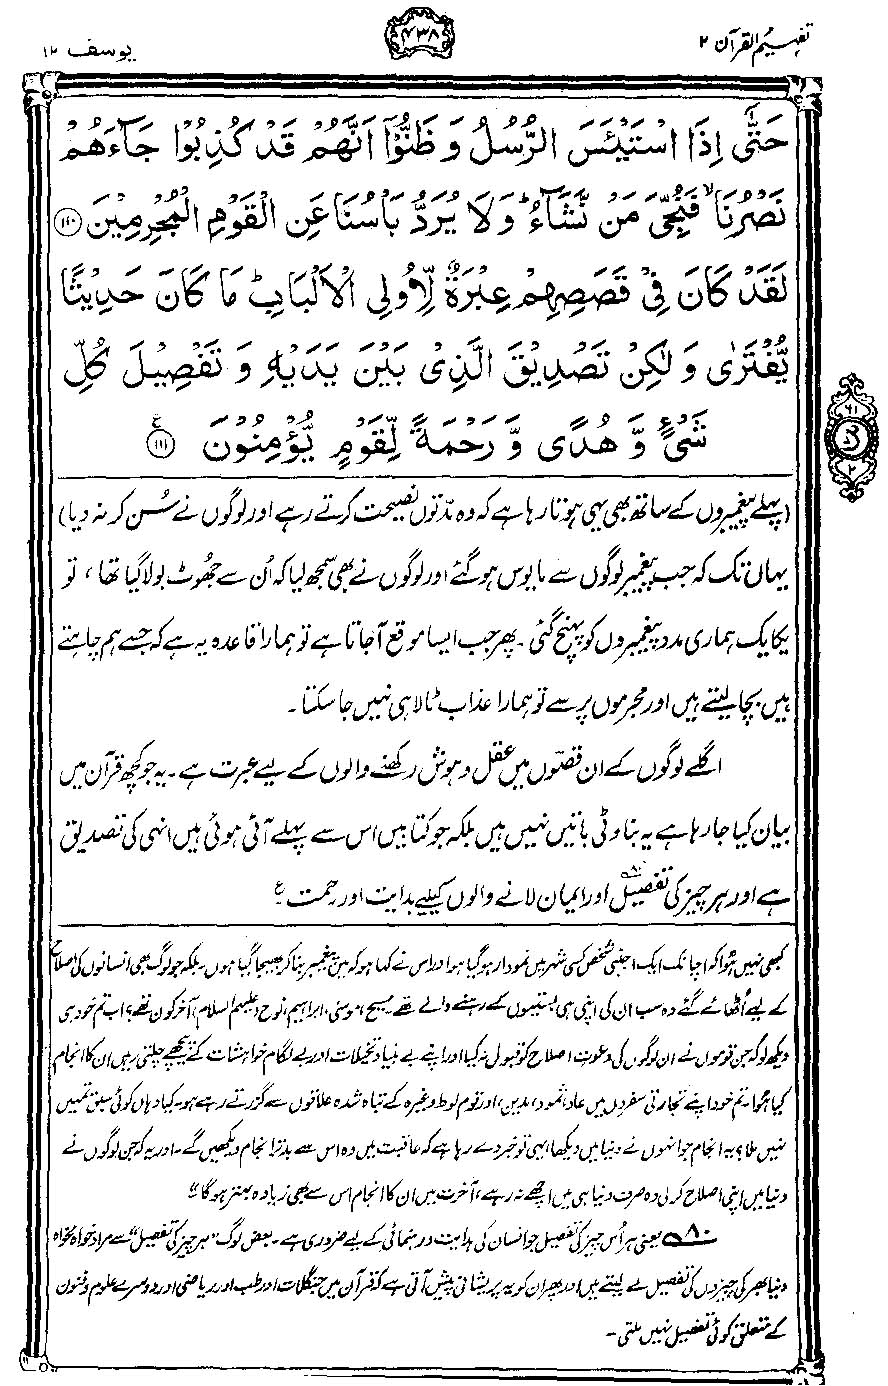 تفہیم القرآن ۲
۴۳۸
یوسف ۱۲
حَتّٰۤى اِذَا اسْتَیْئَسَ الرُّسُلُ وَ ظَنُّوْۤا اَنَّهُمْ قَدْ كُذِبُوْا جَآءَهُمْ
نَصْرُنَا ۙ فَنُجِّیَ مَنْ نَّشَآءُ ؕ وَلَا یُرَدُّ بَاْسُنَا عَنِ الْقَوْمِ الْمُجْرِمِیْنَ ﴿۱۱۰﴾
لَقَدْ كَانَ فِیْ قَصَصِهِمْ عِبْرَةٌ لِّاُولِی الْاَلْبَابِ ؕ مَا كَانَ حَدِیْثًا
یُّفْتَرٰى وَ لٰكِنْ تَصْدِیْقَ الَّذِیْ بَیْنَ یَدَیْهِ وَ تَفْصِیْلَ كُلِّ
شَیْءٍ وَّ هُدًى وَّ رَحْمَةً لِّقَوْمٍ یُّؤْمِنُوْنَ ﴿۱۱۱﴾ ع
(پہلے پیغمبروں کے ساتھ بھی یہی ہوتا رہا ہے کہ وہ مدّتوں نصیحت کرتے رہے اور لوگوں نے سُن کر نہ دیا)
یہاں تک کہ جب پیغمبر لوگوں سے مایوس ہو گئے اور لوگوں نے بھی سمجھ لیا کہ اُن سے جھُوٹ بولا گیا تھا، تو
یکایک ہماری مدد پیغمبروں کو پہنچ گئی۔ پھر جب ایسا موقع آجاتا ہے تو ہمارا قاعدہ یہ ہے کہ جسے ہم چاہتے
ہیں بچا لیتے ہیں اور مجرموں پر سے تو ہمارا عذاب ٹالا ہی نہیں جا سکتا۔
اگلے لوگوں کے ان قصّوں میں عقل و ہوش رکھنے والوں کے لیے عبرت ہے۔ یہ جو کچھ قرآن میں
بیان کیا جا رہا ہے یہ بناوٹی باتیں نہیں ہیں بلکہ جو کتابیں اس سے پہلے آئی ہوئی ہیں انہی کی تصدیق
ہے اور ہر چیز کی تفصیل۸۰ اور ایمان لانے والوں کیلیے ہدایت اور رحمت ع
کبھی نہیں ہُوا کہ اچانک ایک اجنبی شخص کسی شہر میں نمودار ہو گیا ہو اور اس نے کہا ہو کہ میں پیغمبر بنا کر بھیجا گیا ہوں۔ بلکہ جو لوگ بھی انسانوں کی اصلاح
کے لیے اُٹھائے گئے وہ سب ان کی اپنی ہی بستیوں کے رہنے والے تھے۔ مسیح، موسٰی، ابراہیم، نوح (علیہم السلام) آخر کون تھے؟ اب تم خود ہی
دیکھ لو کہ جن قوموں نے ان لوگوں کی دعوت اصلاح کو قبول نہ کیا اور اپنے بے بنیاد تخیلات اور بے لگام خواہشات کے پیچھے چلتی رہیں ان کا انجام
کیا ہُوا۔ تم خود اپنے تجارتی سفروں میں عاد، ثمود، مدین، اور قوم لوط وغیرہ کے تباہ شدہ علاقوں سے گزرتے رہے ہو۔ کیا وہاں کوئی سبق تمہیں
نہیں ملا؟ یہ انجام جو انہوں نے دنیا میں دیکھا، یہی تو خبر دے رہا ہے کہ عاقبت میں وہ اس سے بدتر انجام دیکھیں گے۔ اور یہ کہ جن لوگوں نے
دنیا میں اپنی اصلاح کر لی وہ صرف دنیا ہی میں اچھے نہ رہے، آخرت میں ان کا انجام اس سے بھی زیادہ بہتر ہو گا۔
۸۰ یعنی ہر اُس چیز کی تفصیل جو انسان کی ہدایت و رہنمائی کے لیے ضروری ہے۔ بعض لوگ "ہر چیز کی تفصیل" سے مراد خواہ مخواہ
دنیا بھر کی چیزوں کی تفصیل لے لیتے ہیں اور پھر ان کو یہ پریشانی پیش آتی ہے کہ قرآن میں جنگلات اور طب اور ریاضی اور دوسرے علوم و فنون
کے متعلق کوئی تفصیل نہیں ملتی۔